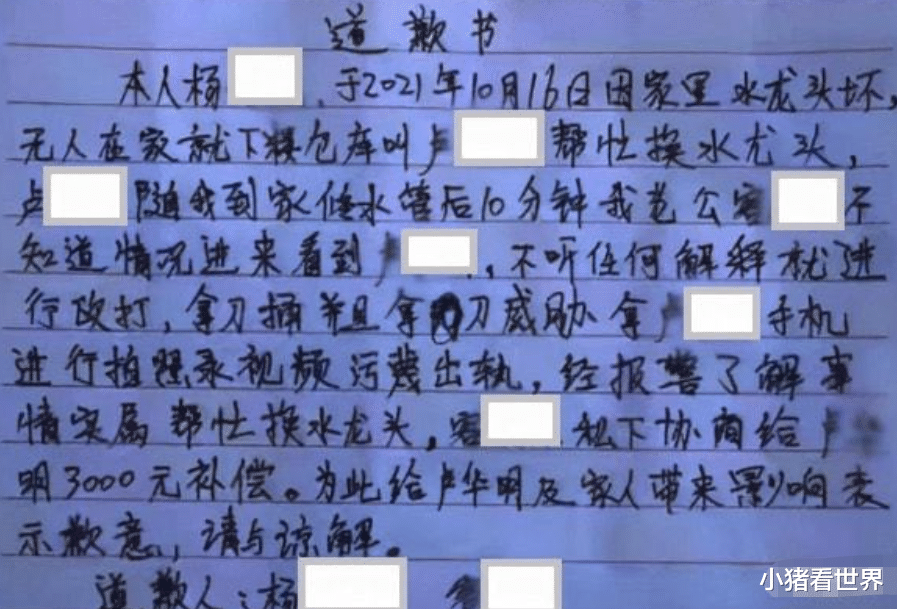 道歉书
本人杨 ,于2021年10月16日因家里水龙头坏,
无人在家就下楼仓库叫卢 帮忙换水龙头,
卢 随我到家修水管后10分钟我老公客 不
知道情况进来看到卢 ,不听任何解释就进
行殴打,拿刀捅并且拿刀威胁拿卢 手机
进行拍照录视频污蔑出轨,经报警了解事
情实属帮忙换水龙头,客 私下协商给卢华
明3000元补偿。为此给卢华明及家人带来影响表
示歉意,请与谅解。
道歉人:杨
小猪看世界